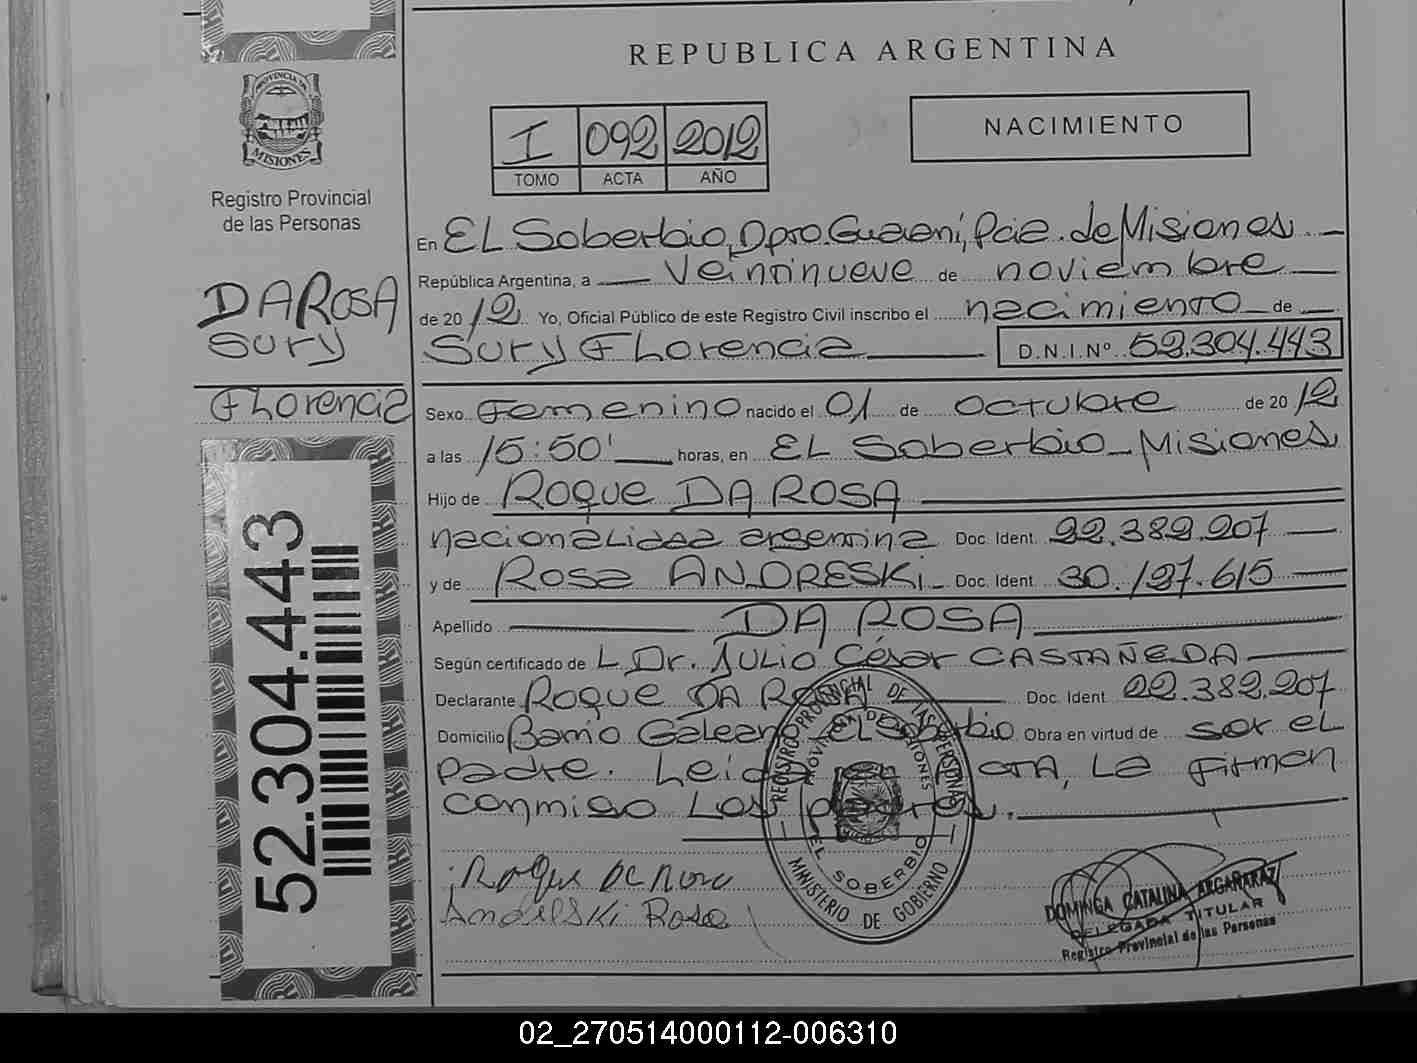 REPUBLICA ARGENTINA
PROVINCIA DE
MISIONES
Registro Provincial
de las Personas
I 092 2012
TOMO ACTA AÑO
NACIMIENTO
DA ROSA
Sury
Florencia
52.304.443
En EL Soberbio, Dpto. Guaraní, Pcia. de Misiones
República Argentina, a Veintinueve de noviembre
de 2012 Yo, Oficial Público de este Registro Civil inscribo el nacimiento de
Sury Florencia D.N.I.Nº 52.304.443
Sexo Femenino nacido el 01 de octubre de 2012
a las 15:50' horas, en EL Soberbio - Misiones
Hijo de Roque DA ROSA
nacionalidad argentina Doc. Ident. 22.382.207
y de Rosa ANDRESKI Doc. Ident. 30.127.615
Apellido DA ROSA
Según certificado de L Dr. Julio César CASTAÑEDA
Declarante Roque DA ROSA Doc. Ident 22.382.207
Domicilio Barrio Galeano, El Soberbio Obra en virtud de ser el
padre. Leida el ACTA, La firman
conmigo Los padres.
REGISTRO PROVINCIAL DE LAS PERSONAS
PROVINCIA DE MISIONES
EL SOBERBIO
MINISTERIO DE GOBIERNO
Roque Da Rosa
Andreski Rosa
DOMINGA CATALINA ARGAÑARAZ
DELEGADA TITULAR
Registro Provincial de las Personas
02_270514000112-006310